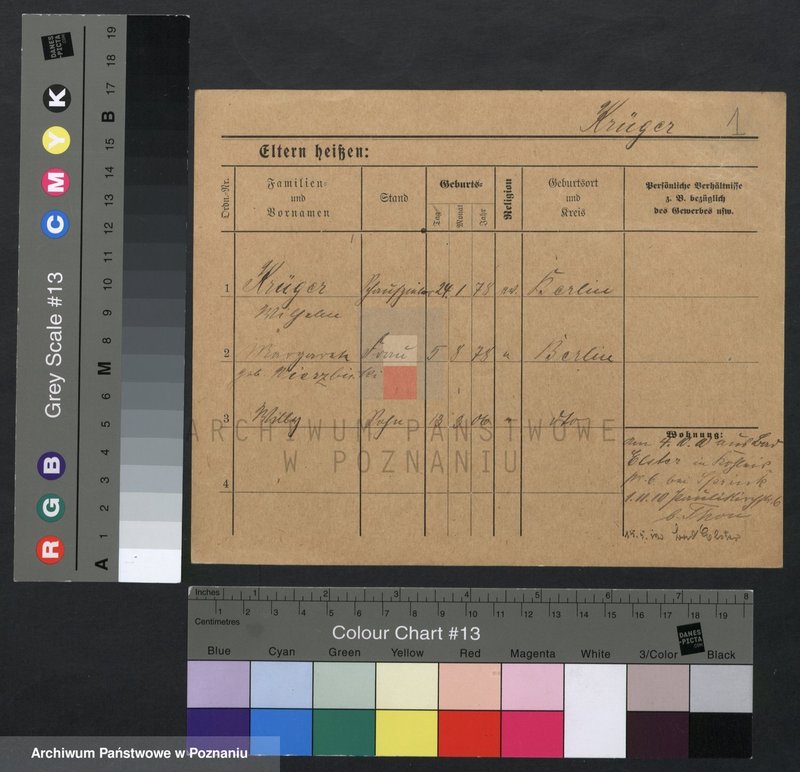 Krüger 1
Eltern heißen:
Ordn.-Nr.
Familien-
und
Vornamen
Stand
Geburts-
Tag
Monat
Jahr
Religion
Geburtsort
und
Kreis
Persönliche Verhältnisse
z. B. bezüglich
des Gewerbes usw.
1 Krüger 24 1 78 ev. Berlin
Wilhelm
2 Margarete Frau 5 8 78 " Berlin
geb. Wierzbinski
3 Willy Sohn 2 06 " dto
Wohnung:
am 4. aus Bad
Elster in
Nr 6 bei
1.11.10 Paulikirchstr. 6
b. Thon
Bad Elster
4
ARCHIWUM PAŃSTWOWE
W POZNANIU
Grey Scale #13
R G B C M Y K
A 1 2 3 4 5 6 M 8 9 10 11 12 13 14 15 B 17 18 19
DANES
-PICTA
.COM
Inches 1 2 3 4 5 6 7 8
Centimetres 1 2 3 4 5 6 7 8 9 10 11 12 13 14 15 16 17 18 19
Colour Chart #13
DANES
-PICTA
.COM
Blue Cyan Green Yellow Red Magenta White 3/Color Black
Archiwum Państwowe w Poznaniu